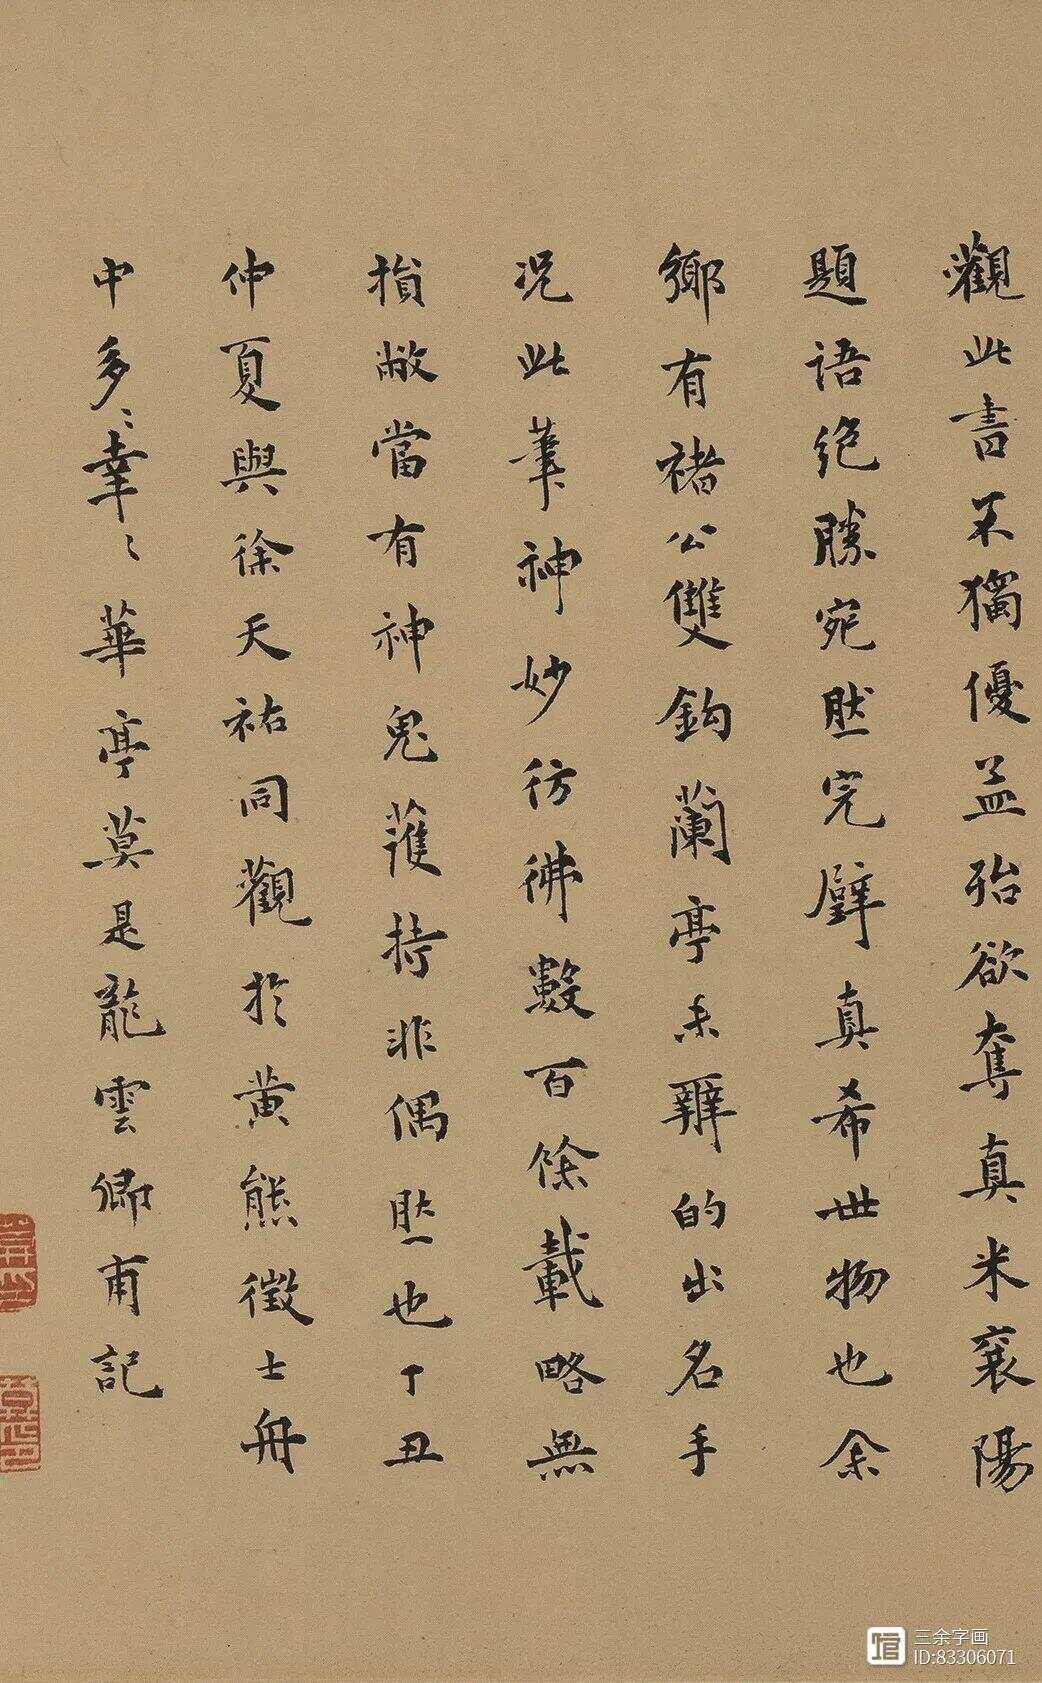 觀此書不獨優孟殆欲奪真米襄陽
題語絶勝宛肰完璧真希世物也余
鄉有褚公雙鈎蘭亭未辨的出名手
况此筆神妙彷彿數百餘載略無
損敝當有神鬼護持非偶肰也丁丑
仲夏與徐天祐同觀於黄熊徵士舟
中多〻幸〻華亭莫是龍雲卿甫記
三余字画
ID:83306071